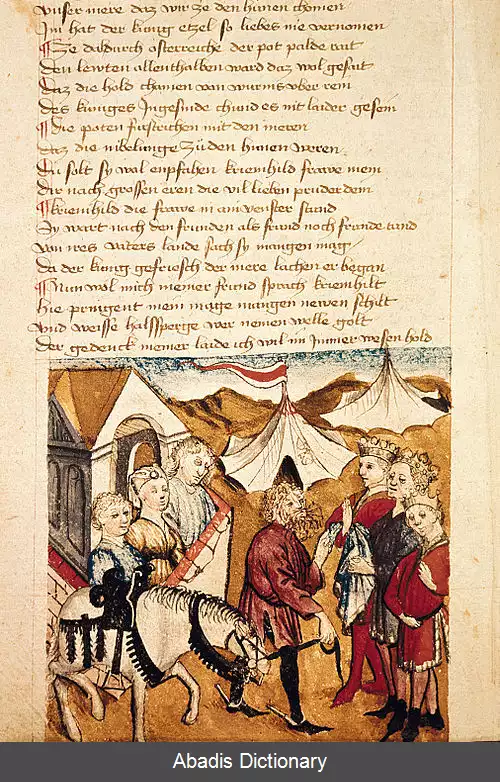 vnser mere daz wir ze den hunen chomen
Im hat der kunig etzel so liebes nie vernomen
Ze dal durch osterreiche der pot palde rait
Den lewten allenthalben ward daz wol gesait
Daz die hold chamen van wurms vber rein
des kuniges Ingesinde chund es nit laider gesein
die poten furstrichen mit den meren
daz die nibelunge zu den hunen weren
Du solt sy wal enpfahen kriemhild frawe mein
Dir nach grossen eren die vil lieben pruder dein
kriemhild die frawe in ain venster stand
Sy wart nach den frunden als frund noch frunde tand
von ires vaters lande sach sy mangen mag
Da der kunig gefriesch der mere lachen er began
Nun wol mich meiner frund sprach kriemhilt
hie pringent mein mage mangen newen schilt
vnd weisse halssperge wer nemen welle golt
der gedenck meiner laide ich wil im immer wesen hold
Abadis Dictionary